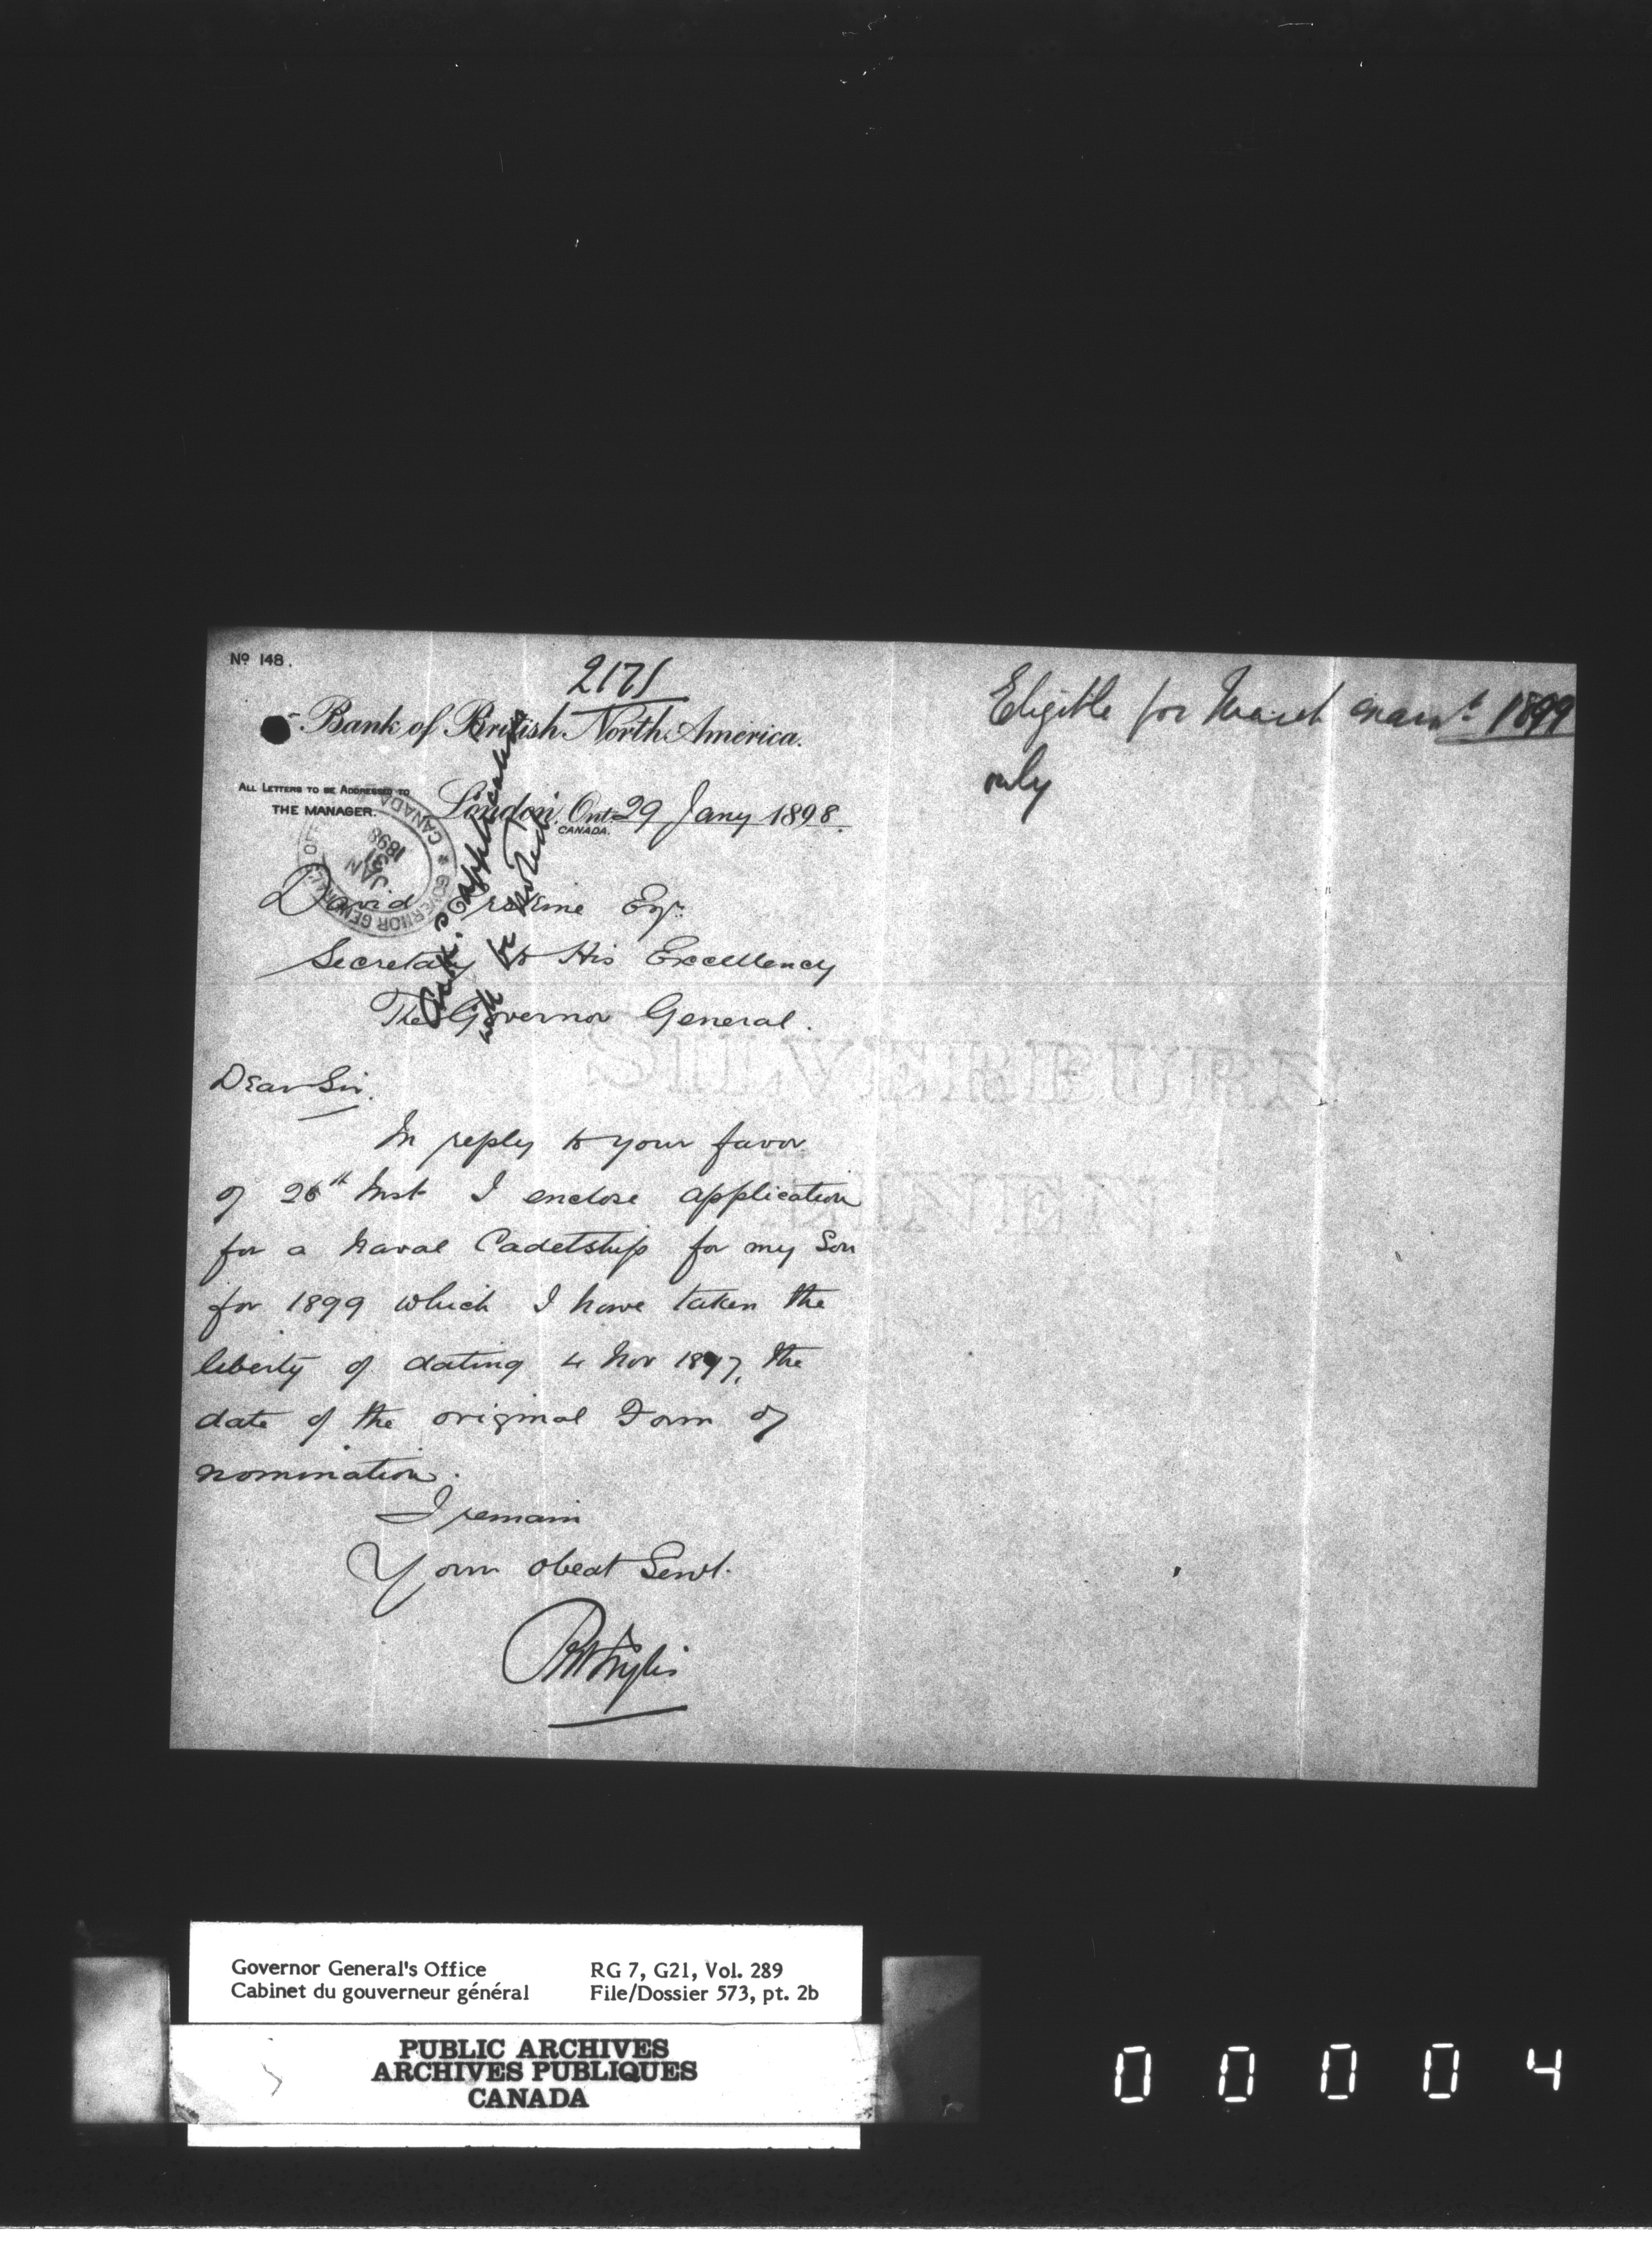 Nº 148.
2171
Bank of British North America.
ALL LETTERS TO BE ADDRESSED TO
THE MANAGER.
London, Ont. 29 Jany 1898.
CANADA.
GOVERNOR GENERAL'S
CANADA
JAN 31 1898
David Erskine Esqr.
Secretary to His Excellency
The Governor General.
application
will be noted
Dear Sir.
In reply to your favor
of 26th Inst I enclose application
for a Naval Cadetship for my Son
for 1899 which I have taken the
liberty of dating 4 Nov 1897, the
date of the original Form of
nomination.
I remain
Your obedt Servt.
Eligible for March examn. 1899
only
SILVERBURN
LINEN
Governor General's Office
Cabinet du gouverneur général
RG 7, G21, Vol. 289
File/Dossier 573, pt. 2b
PUBLIC ARCHIVES
ARCHIVES PUBLIQUES
CANADA
0 0 0 0 4